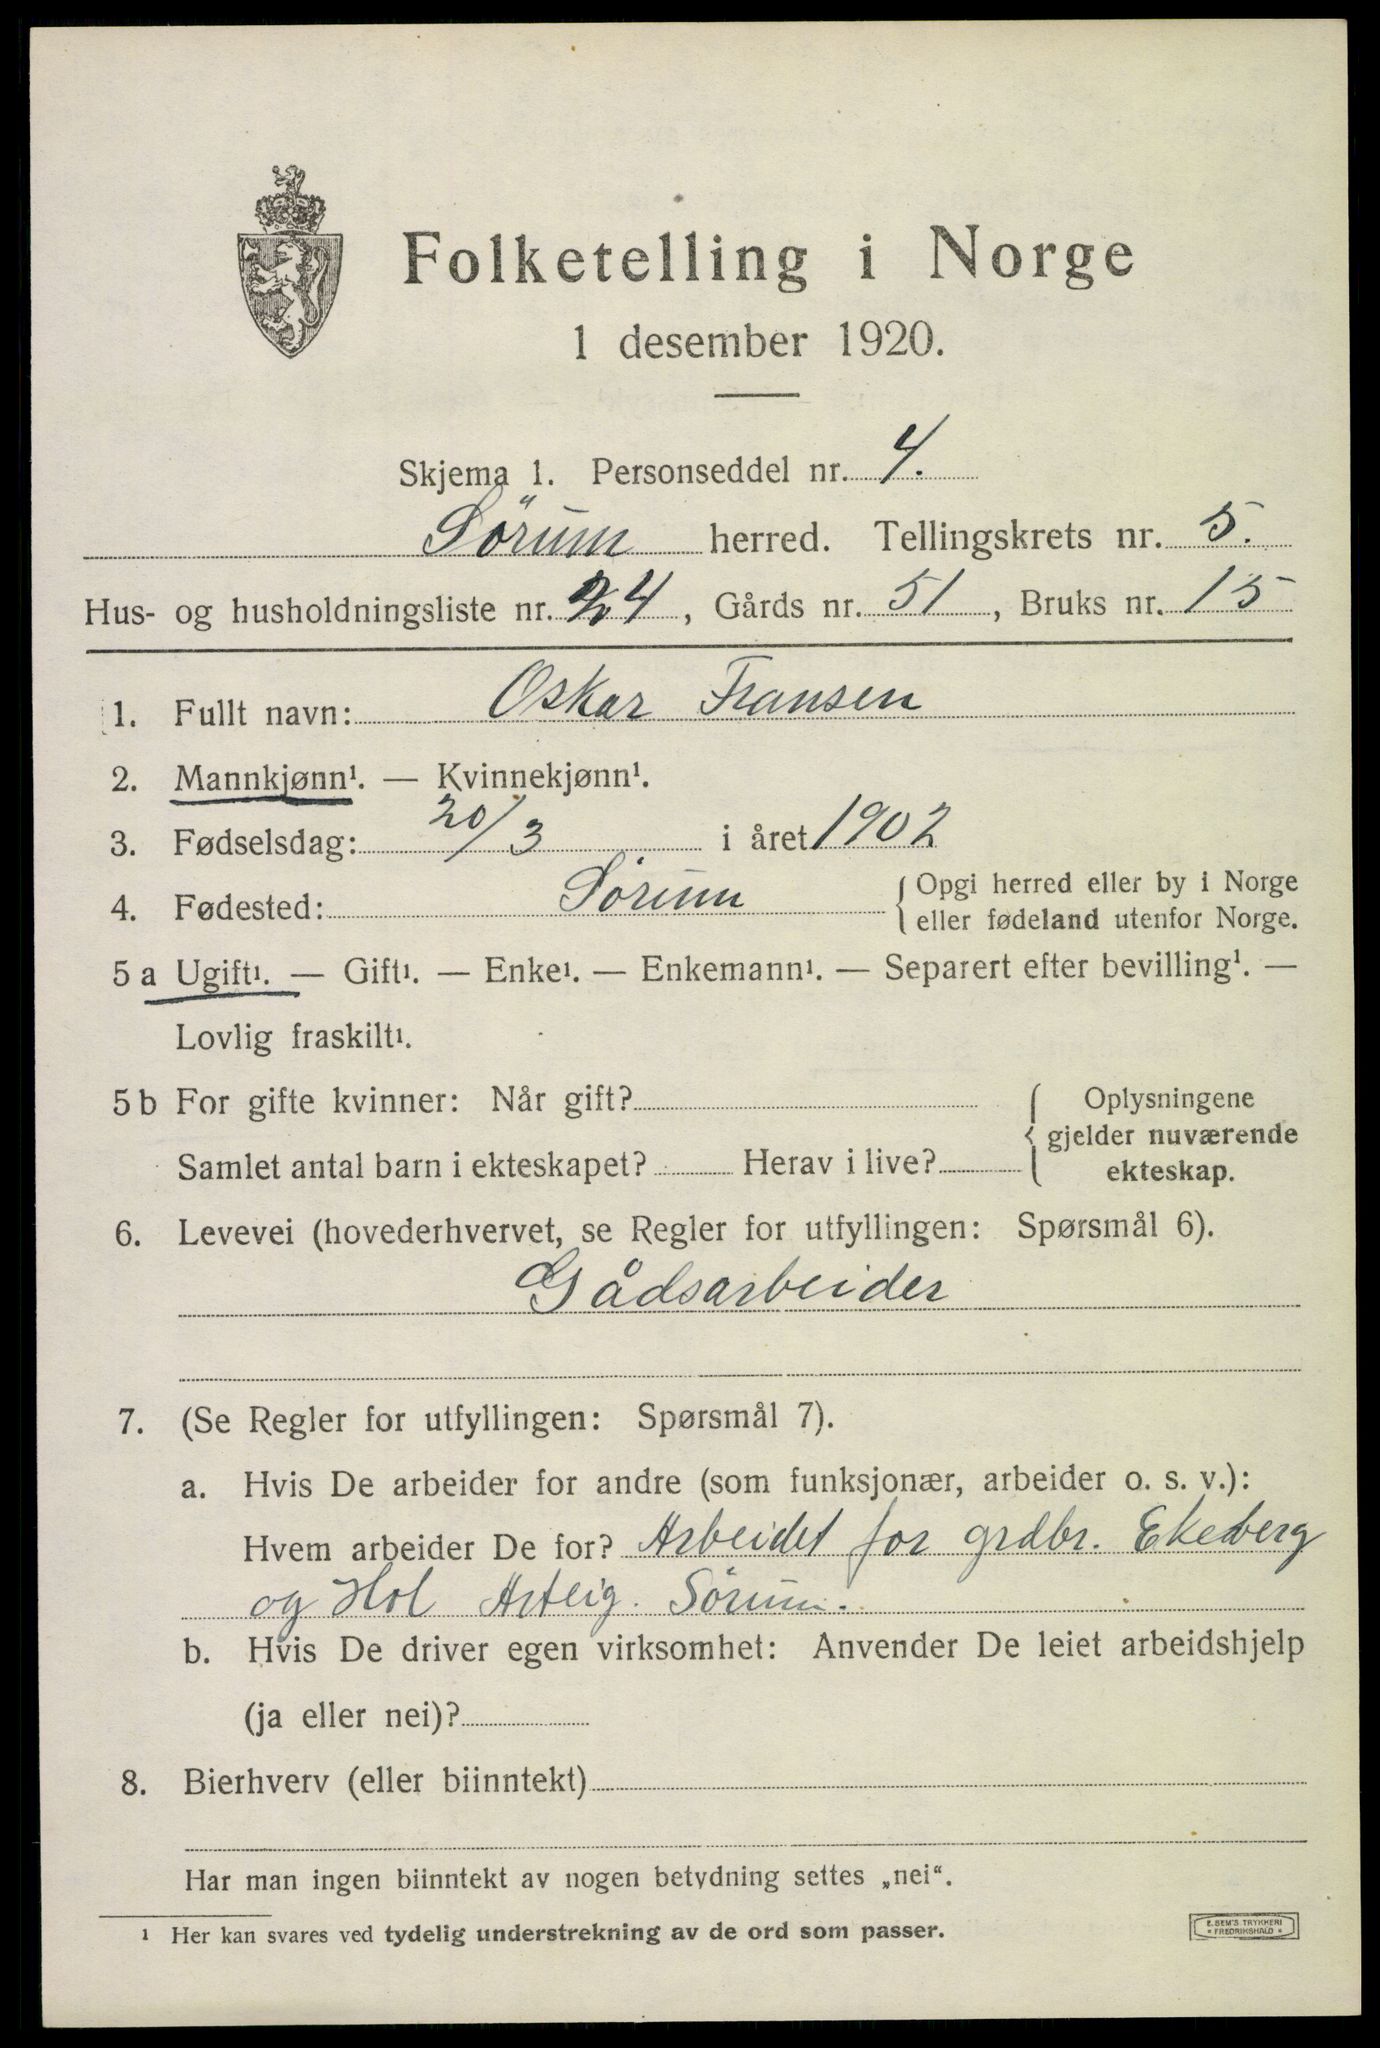 Folketelling i Norge
1 desember 1920.
Skjema 1. Personseddel nr. 4.
Sörum herred. Tellingskrets nr. 5.
Hus- og husholdningsliste nr. 24, Gårds nr. 51, Bruks nr. 15
1. Fullt navn: Oskar Fransen
2. Mannkjønn¹. — Kvinnekjønn¹.
3. Fødselsdag: 20/3 i året 1902
4. Fødested: Sörum { Opgi herred eller by i Norge
eller fødeland utenfor Norge.
5 a Ugift¹. — Gift¹. — Enke¹. — Enkemann¹. — Separert efter bevilling¹. —
Lovlig fraskilt¹.
5 b For gifte kvinner: Når gift? { Oplysningene
gjelder nuværende
Samlet antal barn i ekteskapet? Herav i live? ekteskap.
6. Levevei (hovederhvervet, se Regler for utfyllingen: Spørsmål 6).
Gådsarbeider
7. (Se Regler for utfyllingen: Spørsmål 7).
a. Hvis De arbeider for andre (som funksjonær, arbeider o. s. v.):
Hvem arbeider De for? Arbeidet for grdbr. Ekeberg
og Hol Asteig. Sörum.
b. Hvis De driver egen virksomhet: Anvender De leiet arbeidshjelp
(ja eller nei)?
8. Bierhverv (eller biinntekt)
Har man ingen biinntekt av nogen betydning settes „nei“.
¹ Her kan svares ved tydelig understrekning av de ord som passer.
E. SEM'S TRYKKERI
FREDRIKSHALD